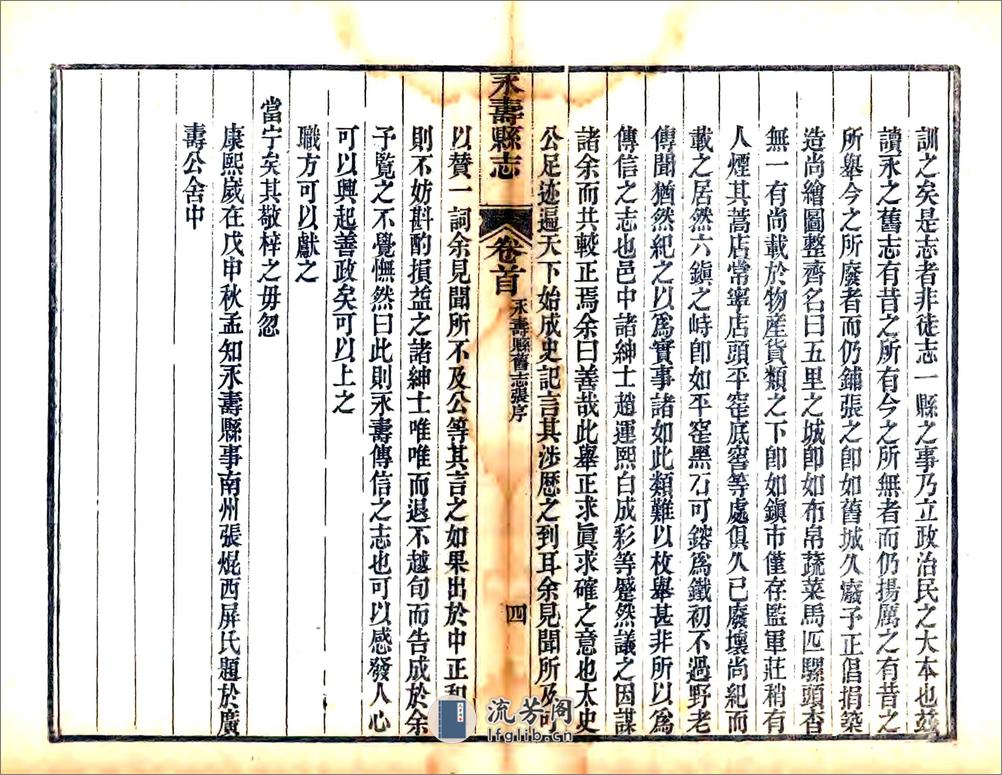 訓之矣是志者非徒志一縣之事乃立政治民之大本也玆
讀永之舊志有昔之所有今之所無者而仍揚厲之有昔之
所舉今之所廢者而仍鋪張之卽如舊城久癈予正倡捐築
造尚繪圖整齊名曰五里之城卽如布帛蔬菜馬匹騾頭杳
無一有尚載於物産貨類之下卽如鎭市僅存監軍莊稍有
人煙其蒿店常寧店頭平窑底窖等處俱久已廢壞尚紀而
載之居然六鎭之峙卽如平窑黑石可鎔爲鐵初不過野老
傳聞猶然紀之以爲實事諸如此類難以枚舉甚非所以爲
傳信之志也邑中諸紳士趙運熙白成彩等蹙然議之因謀
諸余而共較正焉余曰善哉此舉正求眞求確之意也太史
公足迹遍天下始成史記言其涉歷之到耳余見聞所及可
永壽縣志
卷首
永壽縣舊志張序
四
以贊一詞余見聞所不及公等其言之如果出於中正和
則不妨斟酌損益之諸紳士唯唯而退不越旬而告成於余
予覽之不覺憮然曰此則永壽傳信之志也可以感發人心
可以興起善政矣可以上之
職方可以獻之
當宁矣其敬梓之毋忽
康熙歲在戊申秋孟知永壽縣事南州張焜西屏氏題於廣
壽公舍中
流芳阁
lfglib.cn